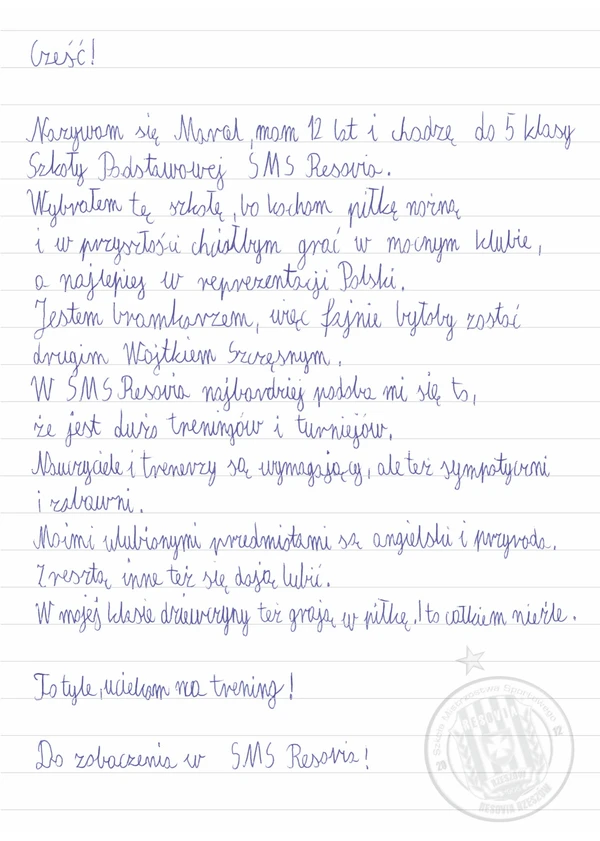 Cześć!
Nazywam się Marcel, mam 12 lat i chodzę do 5 klasy
Szkoły Podstawowej SMS Resovia.
Wybrałem tę szkołę, bo kocham piłkę nożną
i w przyszłości chciałbym grać w mocnym klubie,
a najlepiej w reprezentacji Polski.
Jestem bramkarzem, więc fajnie byłoby zostać
drugim Wojtkiem Szczęsnym.
W SMS Resovia najbardziej podoba mi się to,
że jest dużo treningów i turniejów.
Nauczyciele i trenerzy są wymagający, ale też sympatyczni
i zabawni.
Moimi ulubionymi przedmiotami są angielski i przyroda.
Zresztą inne też się dają lubić.
W mojej klasie dziewczyny też grają w piłkę. I to całkiem nieźle.
To tyle, uciekam na trening!
Do zobaczenia w SMS Resovia!
Szkoła Mistrzostwa Sportowego
RESOVIA
20 12
RZESZÓW
RESOVIA RZESZÓW